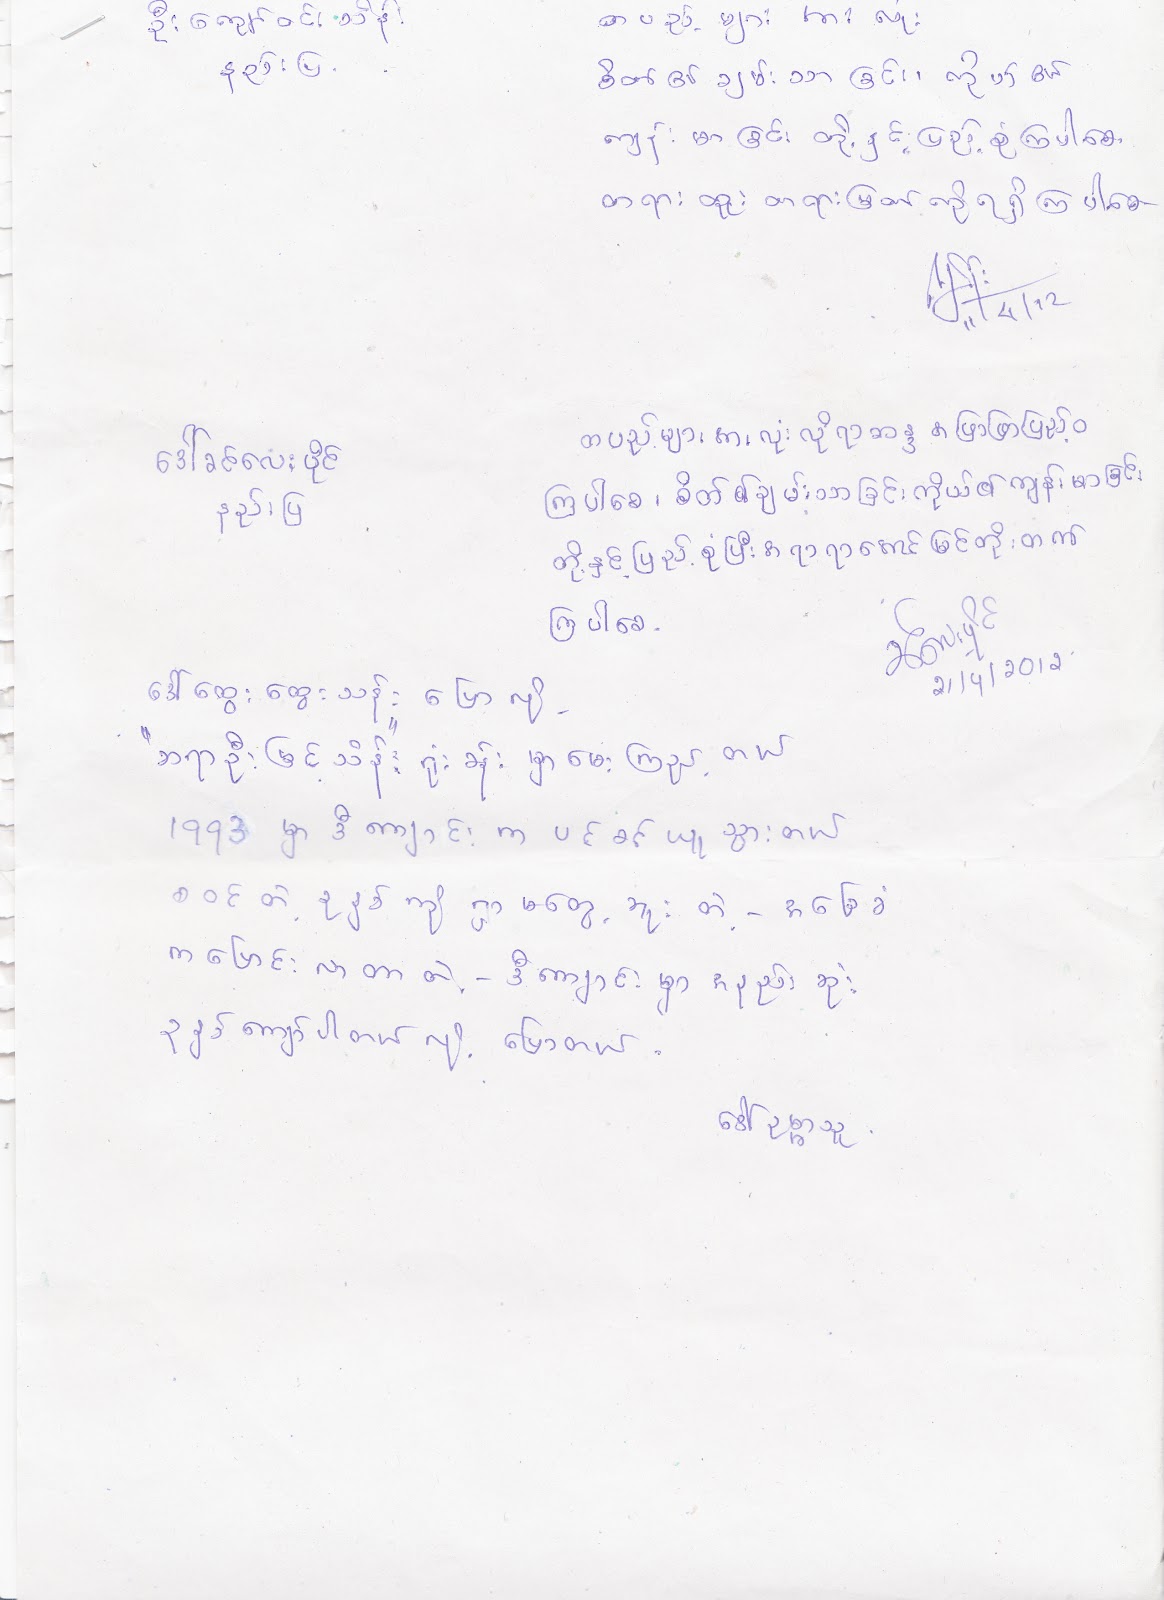 ဦးကျော်ဝင်းသိန်း
နည်းပြ
တပည့်များအားလုံး
စိတ်၏ချမ်းသာခြင်း၊ ကိုယ်၏
ကျန်းမာခြင်းတို့နှင့်ပြည့်စုံကြပါစေ။
တရားထူးတရားမြတ်ကိုရရှိကြပါစေ
11/4/12
ဒေါ်ခင်လေးမိုင်
နည်းပြ
တပည့်များအားလုံးလိုရာဆန္ဒအဖြာဖြာပြည့်ဝ
ကြပါစေ၊ စိတ်၏ချမ်းသာခြင်းကိုယ်၏ကျန်းမာခြင်း
တို့နှင့်ပြည့်စုံပြီးအရာရာအောင်မြင်တိုးတက်
ကြပါစေ.
ခင်လေးမိုင်
ဒေါ်ထွေးထွေးသန်း ပြောလို့ -
"ဆရာဦးမြင့်သိန်း" ရုံးခန်းမှာမေးကြည့်တယ်
1993 မှာဒီကျောင်းကပင်စင်ယူသွားတယ်
ကပြောင်းလာတာတဲ့ - ဒီကျောင်းမှာအနည်းဆုံး
၃နှစ်ကျော်ပါတယ်လို့ ပြောတယ်.